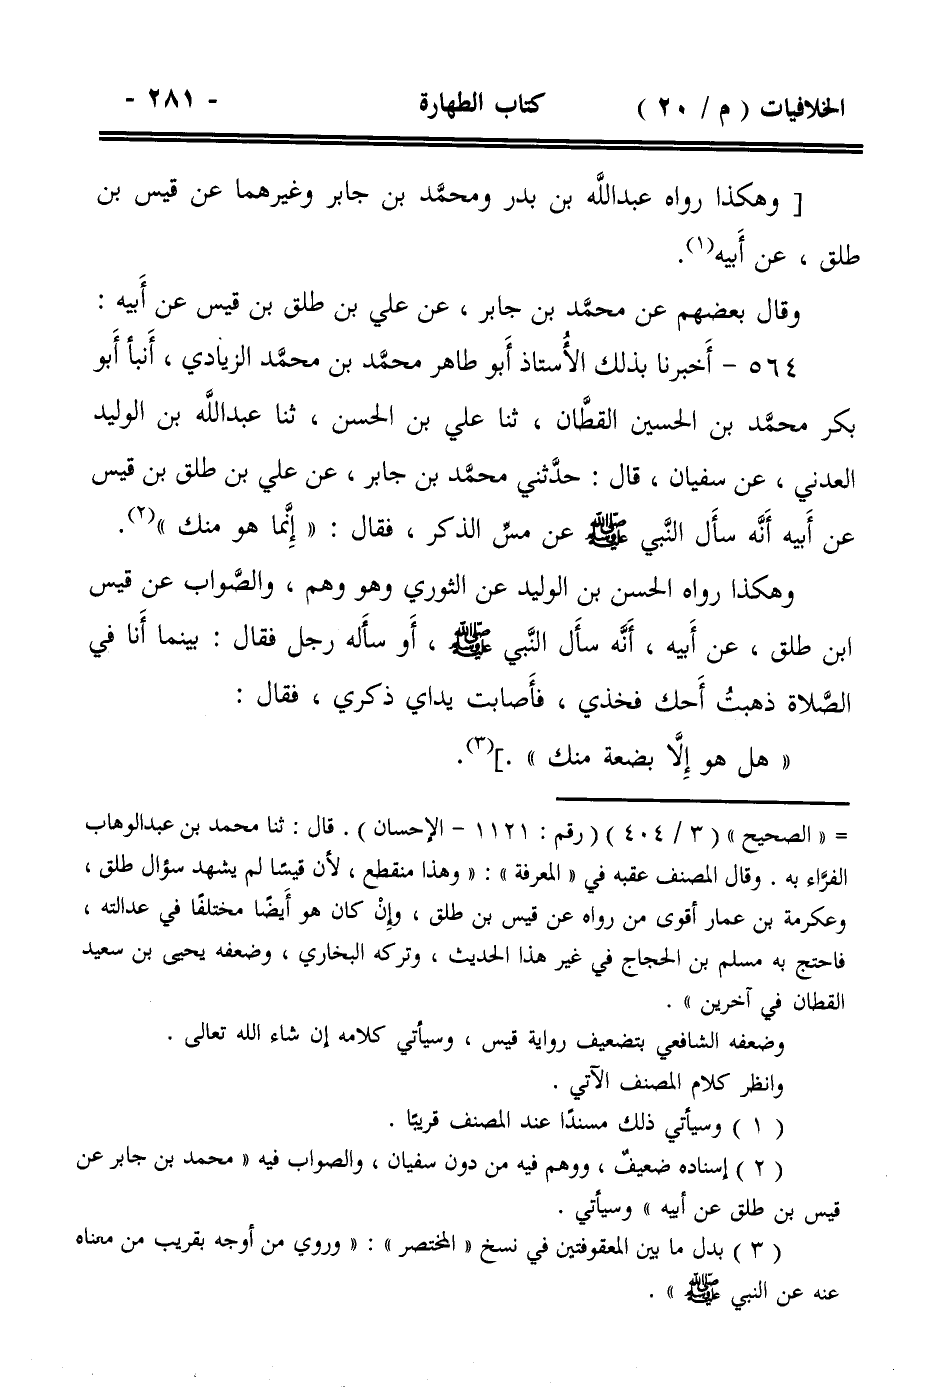 الخلافيات ( م / ٢٠ ) كتاب الطهارة - ٢٨١ -
[ وهكذا رواه عبدالله بن بدر ومحمَّد بن جابر وغيرهما عن قيس بن
طلق ، عن أَبيه(١).
وقال بعضهم عن محمَّد بن جابر ، عن علي بن طلق بن قيس عن أَبيه :
٥٦٤ - أَخبرنا بذلك الأُستاذ أَبو طاهر محمَّد بن محمَّد الزيادي ، أَنبأ أَبو
بكر محمَّد بن الحسين القطَّان ، ثنا علي بن الحسن ، ثنا عبداللَّه بن الوليد
العدني ، عن سفيان ، قال : حدَّثني محمَّد بن جابر ، عن علي بن طلق بن قيس
عن أَبيه أَنَّه سأَل النَّبي ﷺ عن مسِّ الذكر ، فقال : « إِنَّما هو منك »(٢).
وهكذا رواه الحسن بن الوليد عن الثوري وهو وهم ، والصَّواب عن قيس
ابن طلق ، عن أَبيه ، أَنَّه سأَل النَّبي ﷺ ، أَو سأَله رجل فقال : بينما أَنا في
الصَّلاة ذهبتُ أَحك فخذي ، فأَصابت يداي ذكري ، فقال :
« هل هو إِلَّا بضعة منك » .](٣).
= « الصحيح » ( ٣ / ٤٠٤ ) ( رقم : ١١٢١ - الإحسان ) . قال : ثنا محمد بن عبدالوهاب
الفرَّاء به . وقال المصنف عقبه في « المعرفة » : « وهذا منقطع ، لأن قيسًا لم يشهد سؤال طلق ،
وعكرمة بن عمار أقوى من رواه عن قيس بن طلق ، وإِنْ كان هو أَيضًا مختلفًا في عدالته ،
فاحتج به مسلم بن الحجاج في غير هذا الحديث ، وتركه البخاري ، وضعفه يحيى بن سعيد
القطان في آخرين » .
وضعفه الشافعي بتضعيف رواية قيس ، وسيأتي كلامه إن شاء الله تعالى .
وانظر كلام المصنف الآتي .
( ١ ) وسيأتي ذلك مسندًا عند المصنف قريبًا .
( ٢ ) إسناده ضعيفٌ ، ووهم فيه من دون سفيان ، والصواب فيه « محمد بن جابر عن
قيس بن طلق عن أبيه » وسيأتي .
( ٣ ) بدل ما بين المعقوفتين في نسخ « المختصر » : « وروي من أوجه بقريب من معناه
عنه عن النبي ﷺ » .